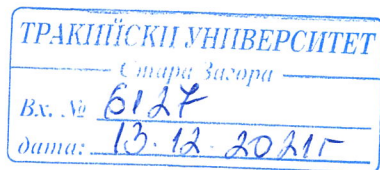 ТРАКИЙСКИ УНИВЕРСИТЕТ
Стара Загора
Вх. № 6127
дата: 13.12.2021г